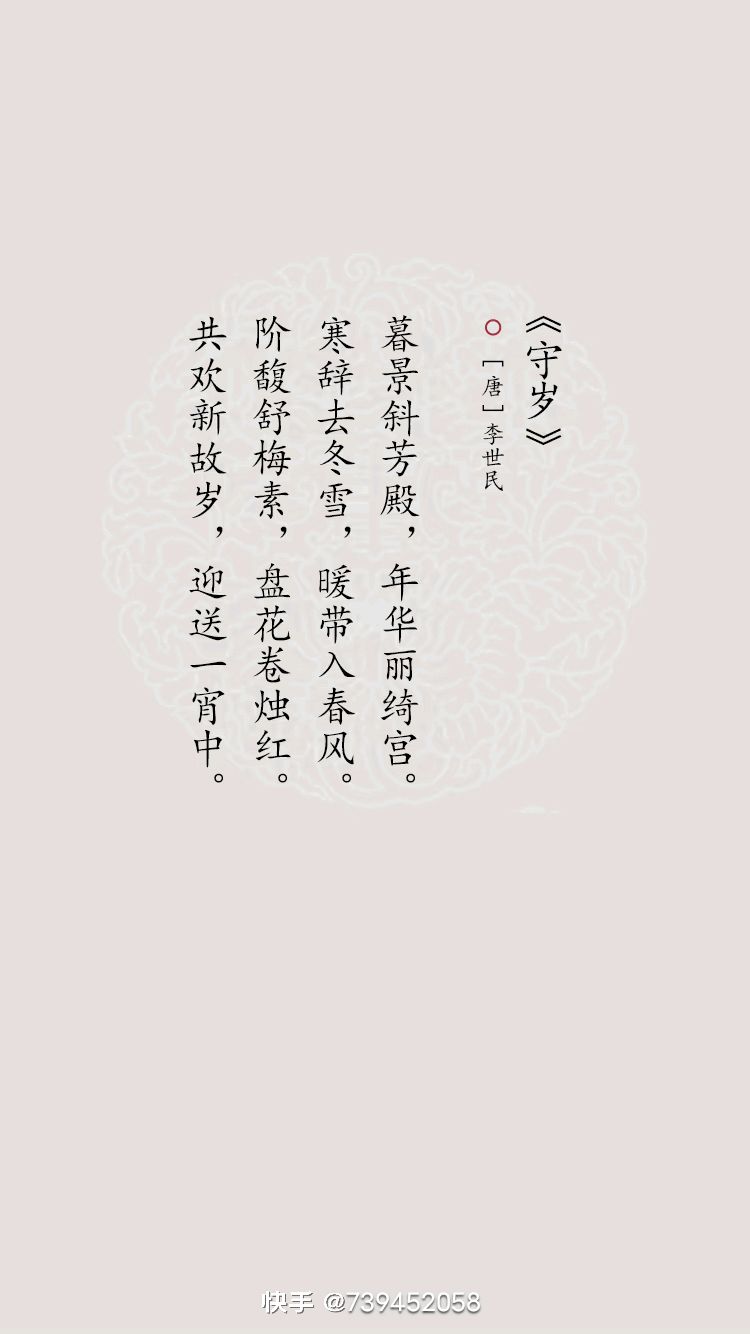 《守岁》
［唐］李世民
暮景斜芳殿，年华丽绮宫。
寒辞去冬雪，暖带入春风。
阶馥舒梅素，盘花卷烛红。
共欢新故岁，迎送一宵中。
快手 @739452058